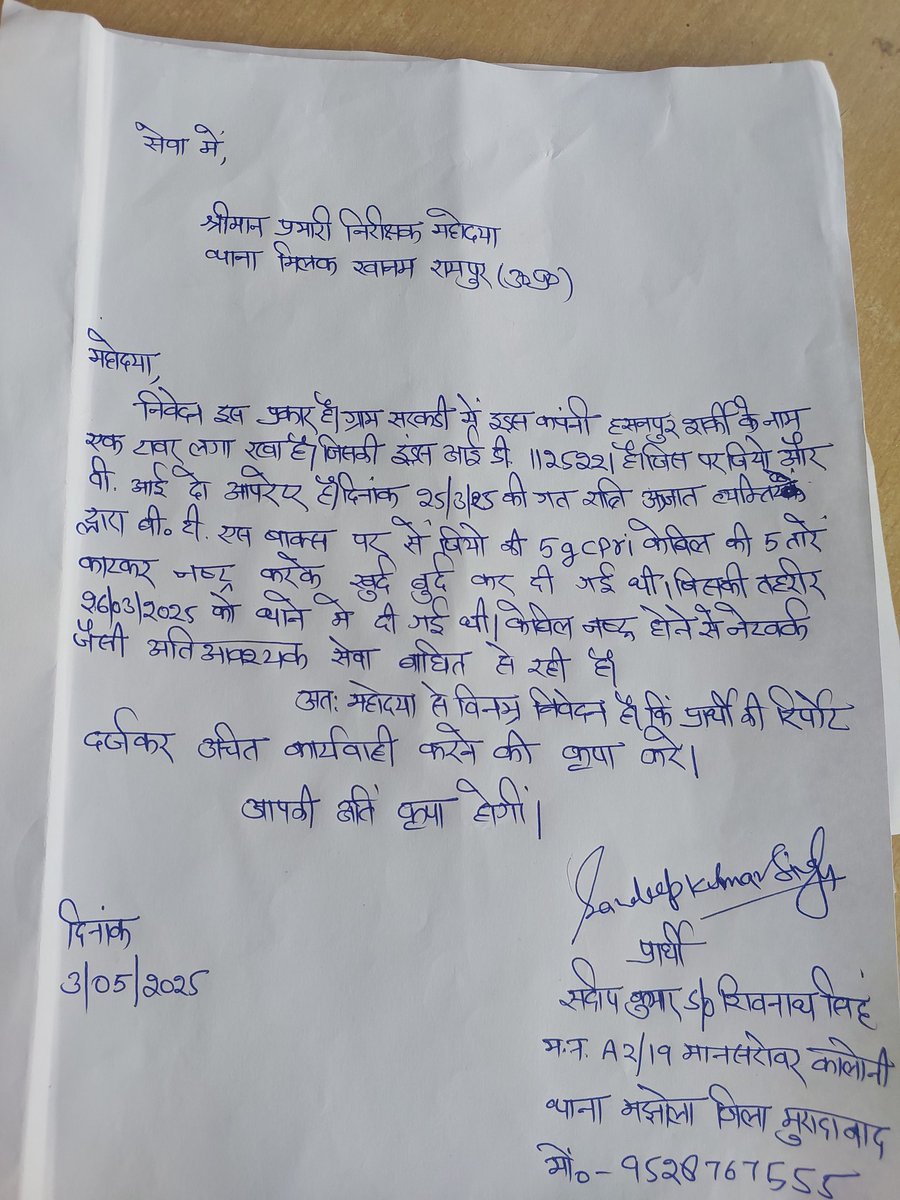 सेवा में,
श्रीमान प्रभारी निरीक्षक महोदया
थाना मिलक खानम रामपुर (उ०प्र०)
महोदया,
निवेदन इस प्रकार है। ग्राम सरकडी में इंडस कंपनी हसनपुर शर्की के नाम
एक टावर लगा रखा है। जिसकी इंडस आई डी. 112522। है। जिस पर जियो और
वी. आई दो आपरेटर है। दिनांक 25/3/25 की गत रात्रि अज्ञात व्यक्तियों
द्वारा बी. टी. एस बाक्स पर से जियो की 5g cpri केबिल की 5 तारें
काटकर नष्ट करके खुर्द बुर्द कर दी गई थी। जिसकी तहरीर
26/03/2025 को थाने मे दी गई थी। केबिल नष्ट होने से नेटवर्क
जैसी अतिआवश्यक सेवा बाधित हो रही है।
अतः महोदया से विनम्र निवेदन है कि प्रार्थी की रिपोर्ट
दर्जकर उचित कार्यवाही करने की कृपा करे।
आपकी अति कृपा होगी।
Sandeep Kumar Singh
प्रार्थी
दिनांक
3/05/2025
संदीप कुमार S/o शिवनाथ सिंह
म.न. A2/19 मानसरोवर कालोनी
थाना मझोला जिला मुरादाबाद
मो० - 9528767555